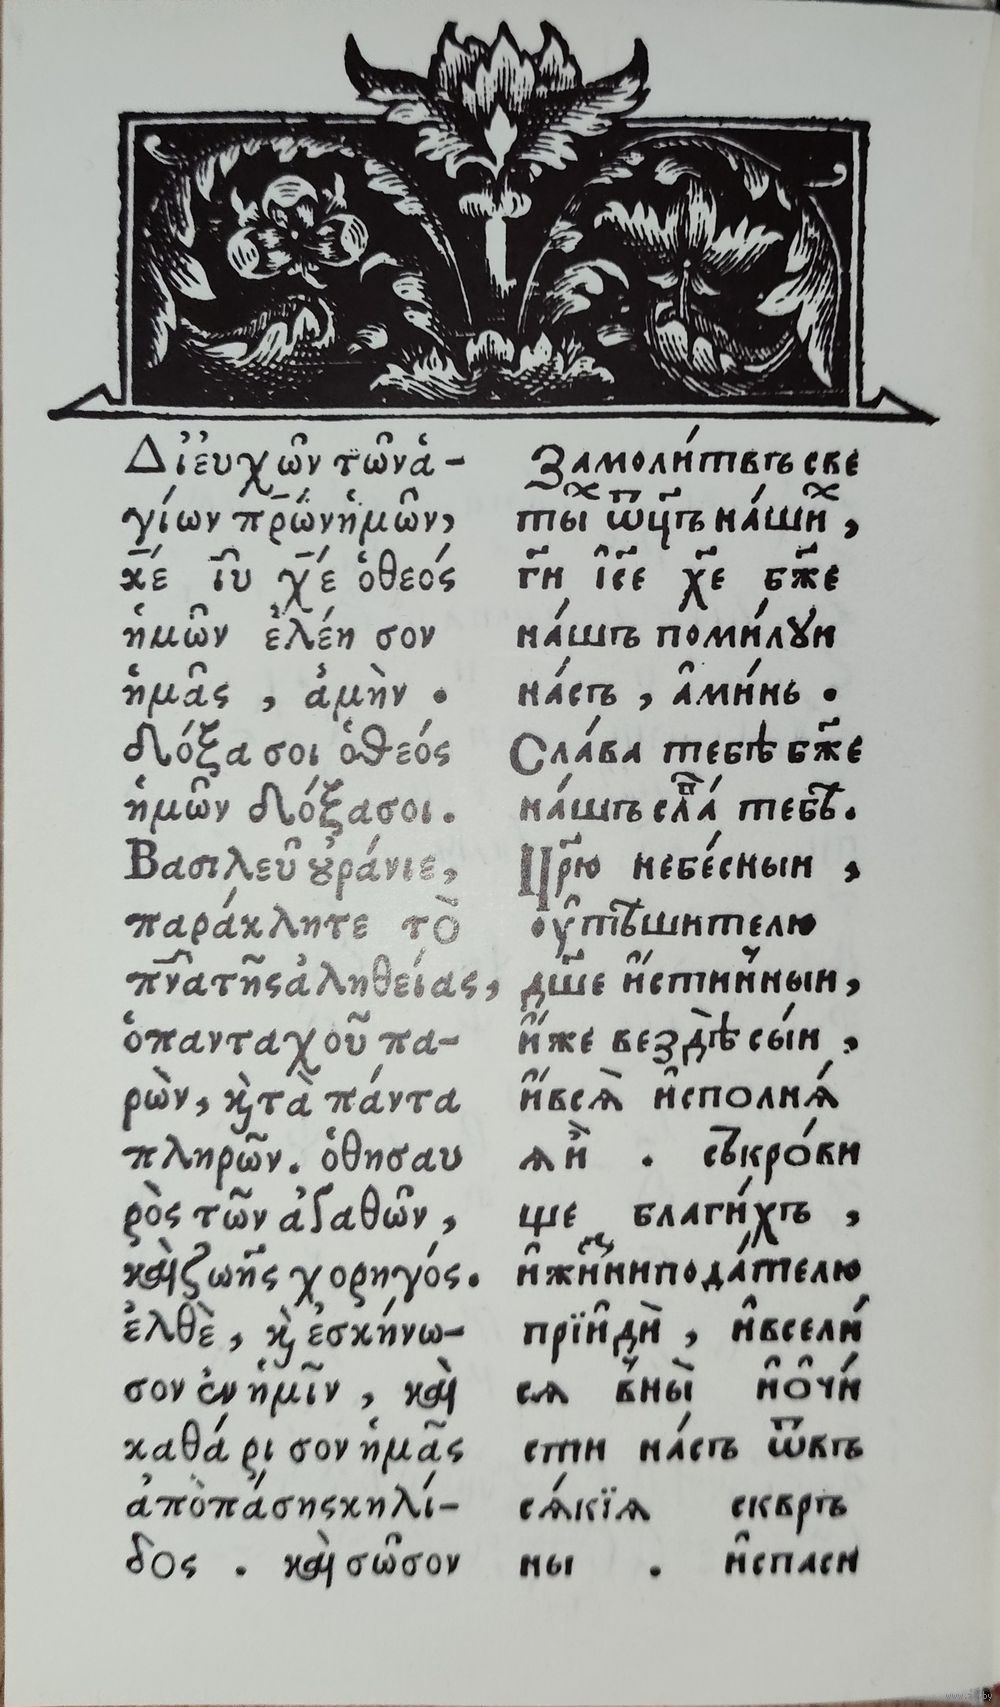 Δἰ ἐυχῶν τῶν ἁ-
γίων πρ̅ω̅ν ἡμῶν,
κ̅έ ι̅υ̅ χ̅έ ὁ θεός
ἡμῶν ἐλέη σον
ἡμᾶς , ἀμὴν .
δόξα σοι ὁ θεός
ἡμῶν δόξα σοι.
Βασιλεῦ ȣ̓ράνιε,
παράκλητε τὸ
πν̅α τῆς ἀληθείας,
ὁ πανταχοῦ πα-
ρὼν, ϗ̀ τὰ πάντα
πληρῶν. ὁ θησαυ
ρὸς τῶν ἀγαθῶν,
καὶ ζωῆς χορηγός.
ἐλθὲ, ϗ̀ ἐσκήνω-
σον ἐν ἡμῖν , καὶ
καθά ρι σον ἡμᾶς
ἀπὸ πάσης κηλί-
δος . καὶ σῶσον
За моли́твъ све
ты̑ⷯ ѿц҃ъ на́ши̑ⷯ ,
гн҃ и҆і҃се хе҃ бж҃е
на́шъ поми́лꙋи
на́съ , а҆ми́нь .
Сла́ва тебѣ бж҃е
на́шъ слⷡ҇а́ тебѣ.
Цр҃ю небе́сныи ,
ѹ҆тѣшителю
дш҃е и҆́стинныи,
и҆́же вездѣ̀ сы́и ,
и҆́ всѧ̀ и҆сполнѧ́
ѧи҆̀ . съкро́ви
ще благи́хъ ,
и҆ жи́зни пода́телю
прїи҆дѝ , и҆ всели́
сѧ в҆ ны̀ и҆ ѡ҆чи́
сти на́съ ѿ въ
сѧ́кїѧ сквръ
ны . и҆ спаси